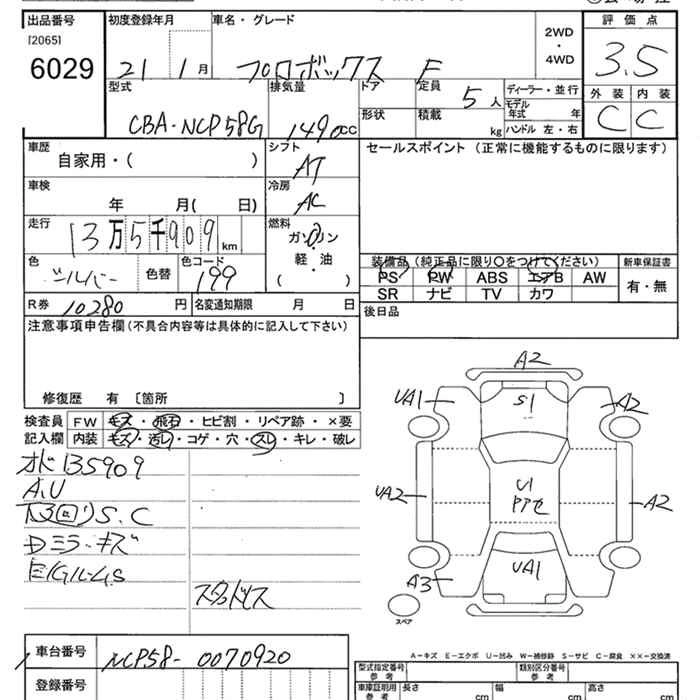 出品番号 初度登録年月 車名・グレード 評価点
[2065]
6029 21 1月 プロボックス F 2WD ・ 4WD 3.5
型式 排気量 ドア 定員 5人 ディーラー・並行 外装 内装
CBA-NCP58G 1490cc 形状 積載 kg モデル年式 年 C C
ハンドル 左・右
車歴 シフト セールスポイント (正常に機能するものに限ります)
自家用・( ) AT
車検 冷房
年 月( 日) AC
走行 燃料
13万5千909km ガソリン
軽油
( )
色 色コード 装備品 (純正品に限り○をつけてください) 新車保証書
シルバー 色替 199 PS PW ABS エアB AW 有・無
SR ナビ TV カワ
R券 10280円 名変通知期限 月 日 後日品
注意事項申告欄(不具合内容等は具体的に記入して下さい)
修復歴 有 〔箇所 〕
検査員 FW キズ・飛石・ヒビ割・リペア跡・×要
記入欄 内装 キズ・汚レ・コゲ・穴・スレ・キレ・破レ
135909
A.U
S.C
ミラーキズ
スタッドレス
A2
UA1 S1 A2
UA2 U1 A2
A3 UA1
スペア
A-キズ E-エクボ U-凹み W-補修跡 S-サビ C-腐食 ××-交換済
車台番号 NCP58-0070920
登録番号
型式指定番号 参考 類別区分番号 参考
車庫証明用 参考 長さ cm 幅 cm 高さ cm